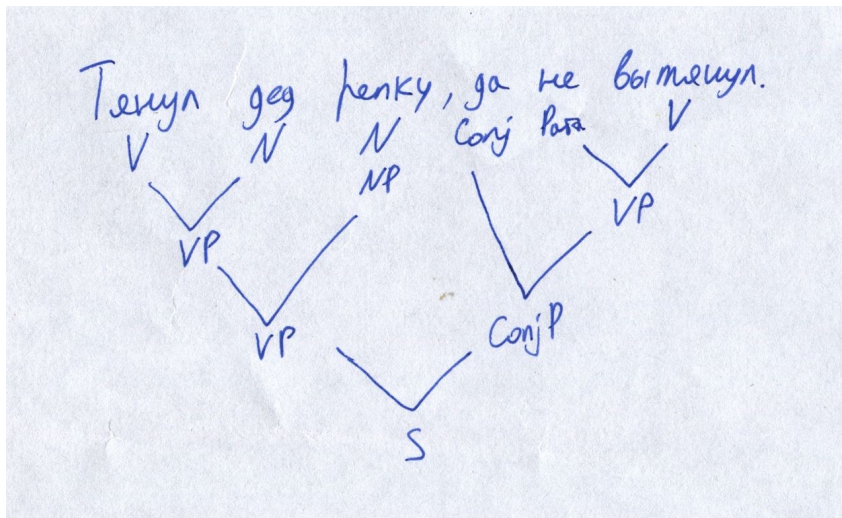 Тянул дед репку, да не вытянул.
V N N Conj Part V
NP
VP VP
VP ConjP
S